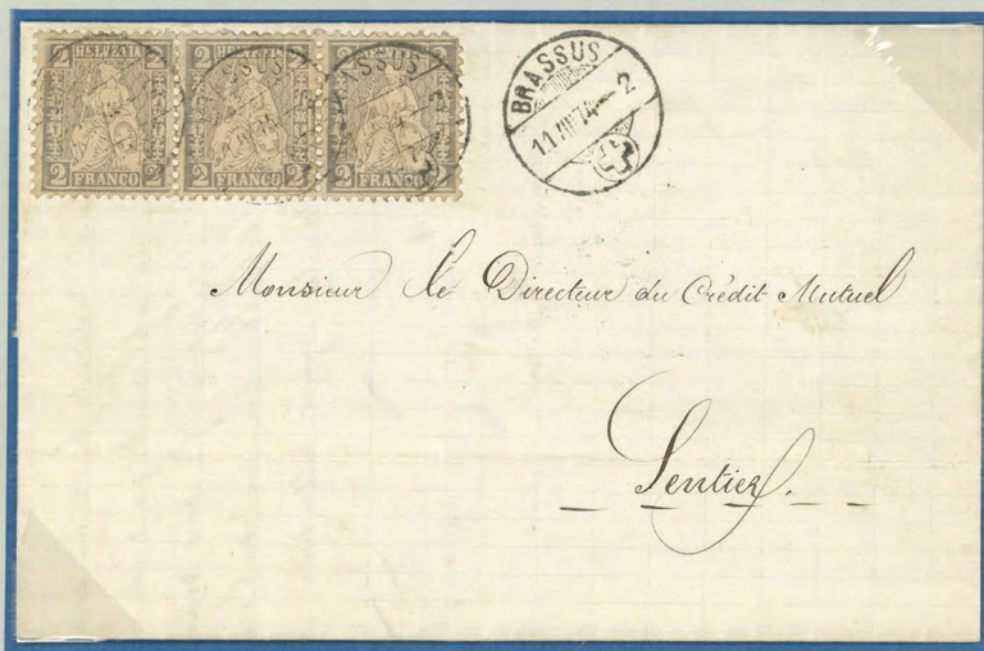 2 HELVETIA 2
2 FRANCO 2
2 HELVETIA 2
2 FRANCO 2
2 HELVETIA 2
2 FRANCO 2
BRASSUS
11 VII 74 — 2
Monsieur le Directeur du Crédit Mutuel
Sentier.